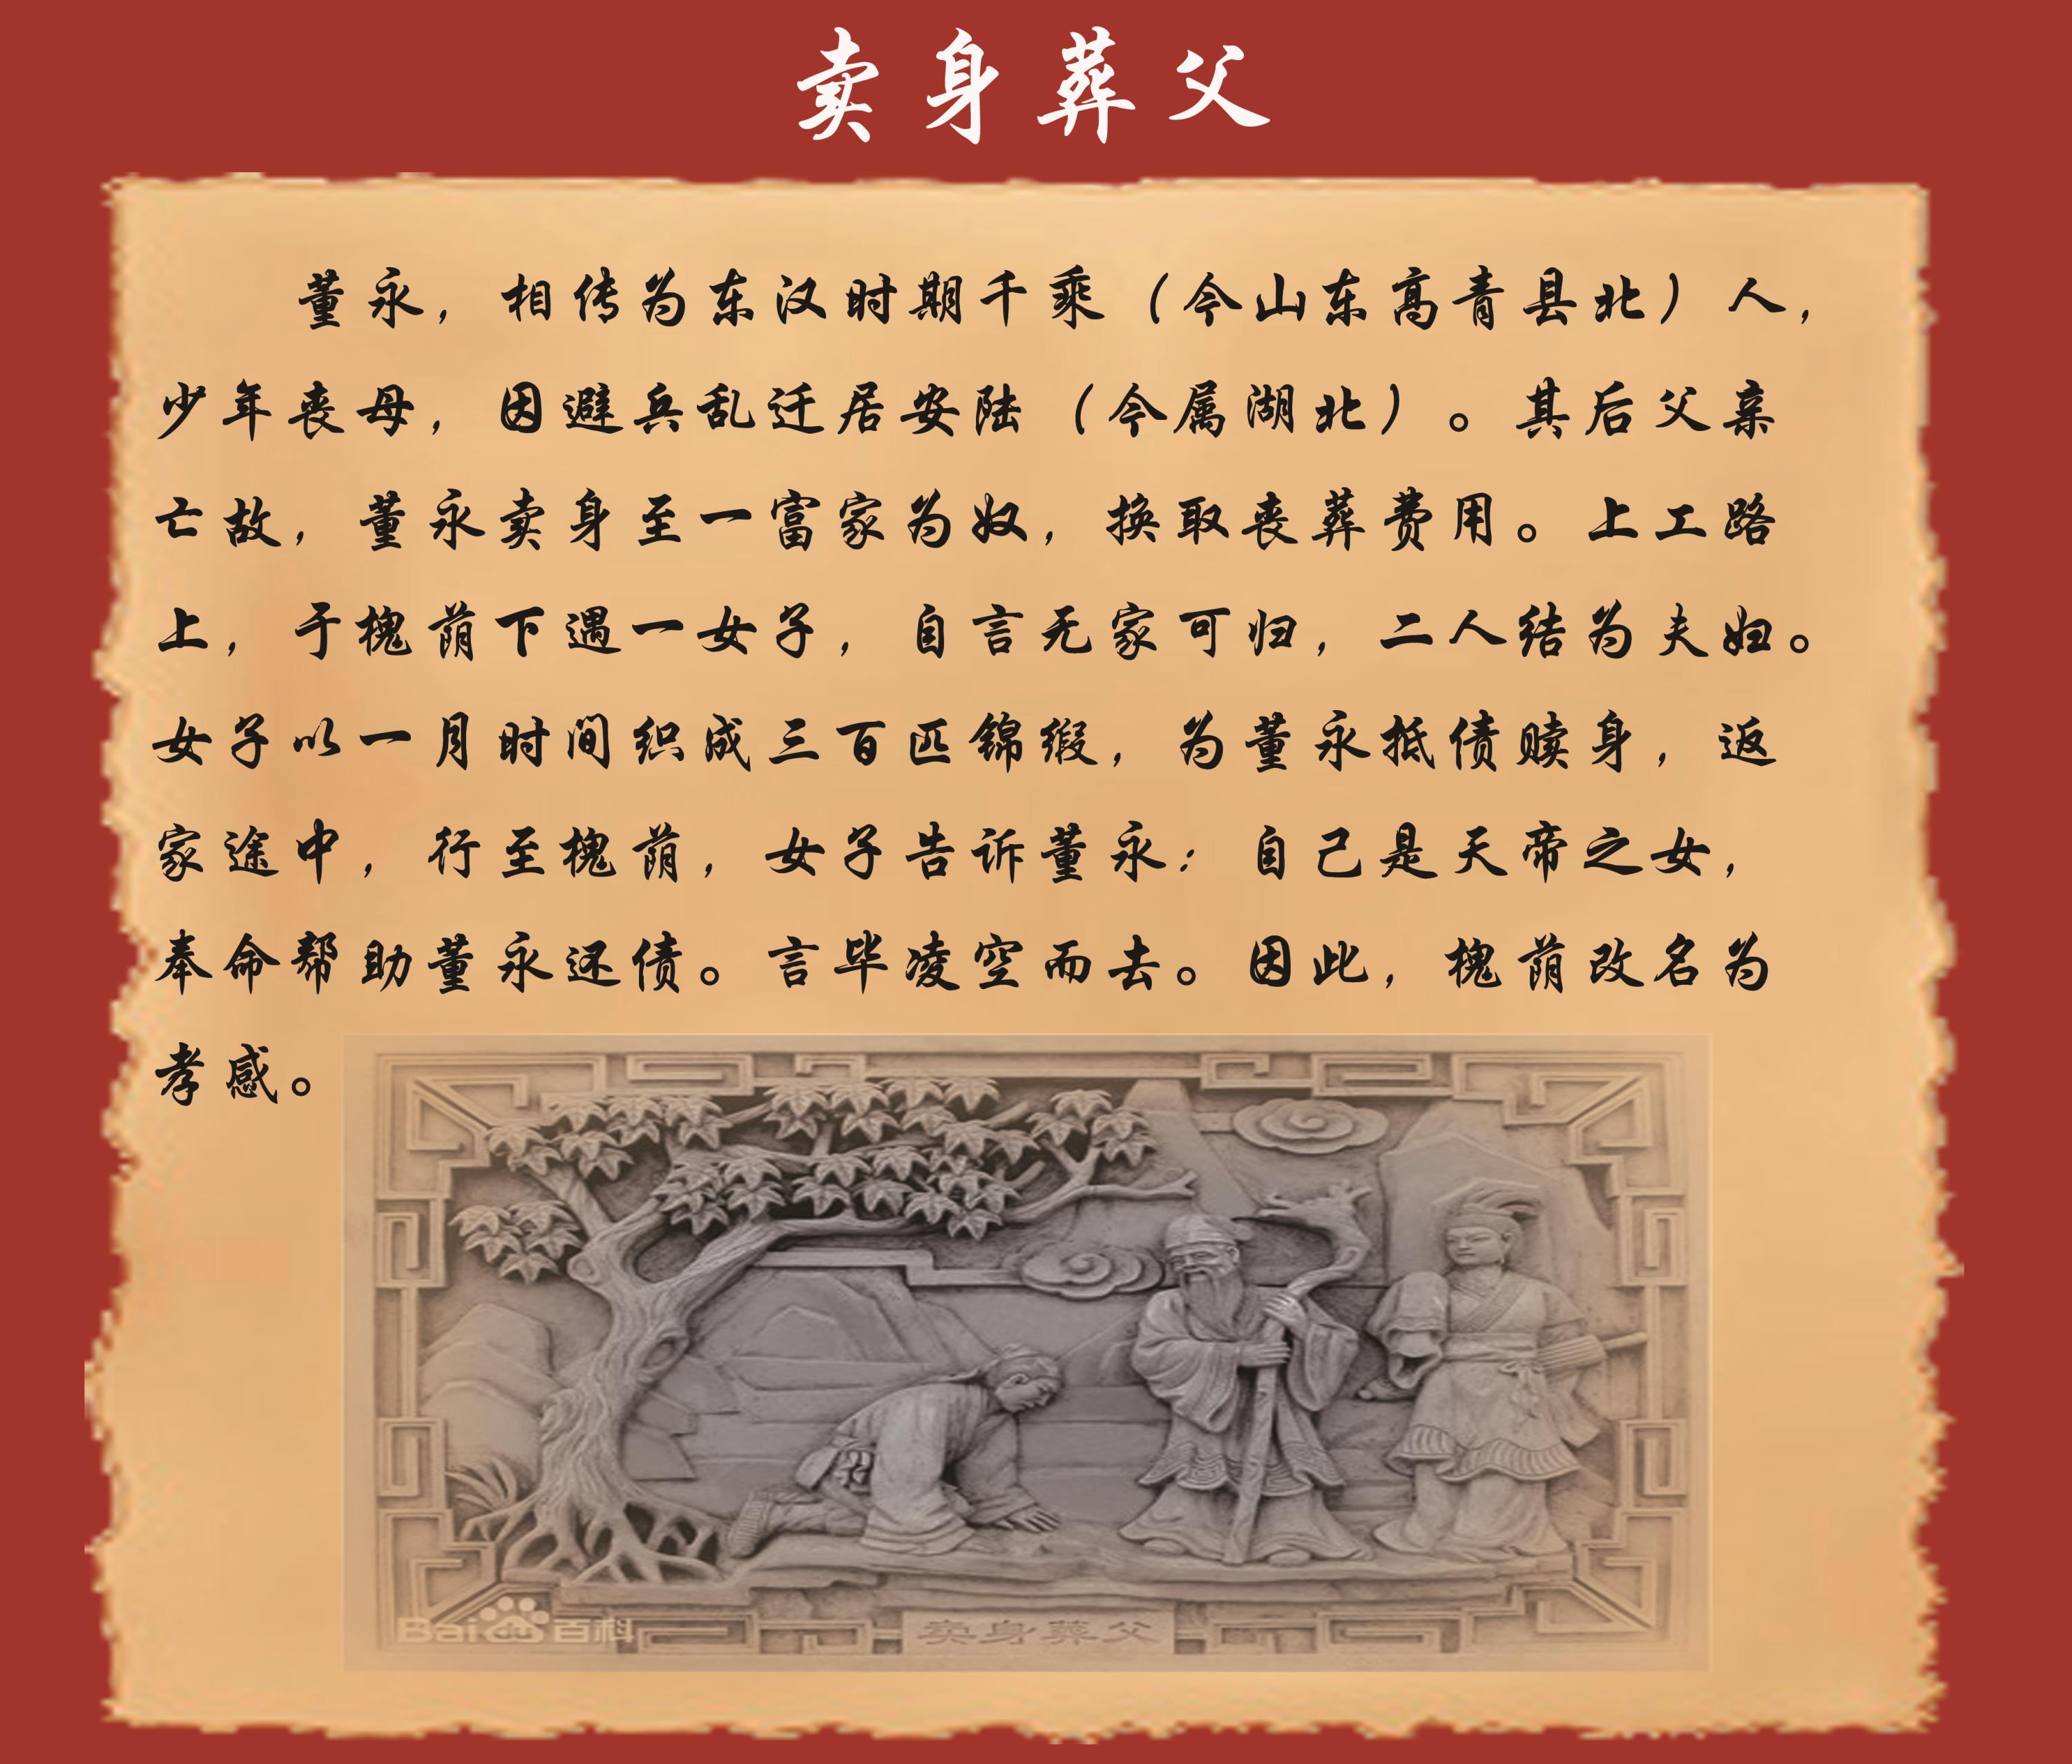 卖身葬父
董永，相传为东汉时期千乘（今山东高青县北）人，
少年丧母，因避兵乱迁居安陆（今属湖北）。其后父亲
亡故，董永卖身至一富家为奴，换取丧葬费用。上工路
上，于槐荫下遇一女子，自言无家可归，二人结为夫妇。
女子以一月时间织成三百匹锦缎，为董永抵债赎身，返
家途中，行至槐荫，女子告诉董永：自己是天帝之女，
奉命帮助董永还债。言毕凌空而去。因此，槐荫改名为
孝感。
Bai du 百科
卖身葬父